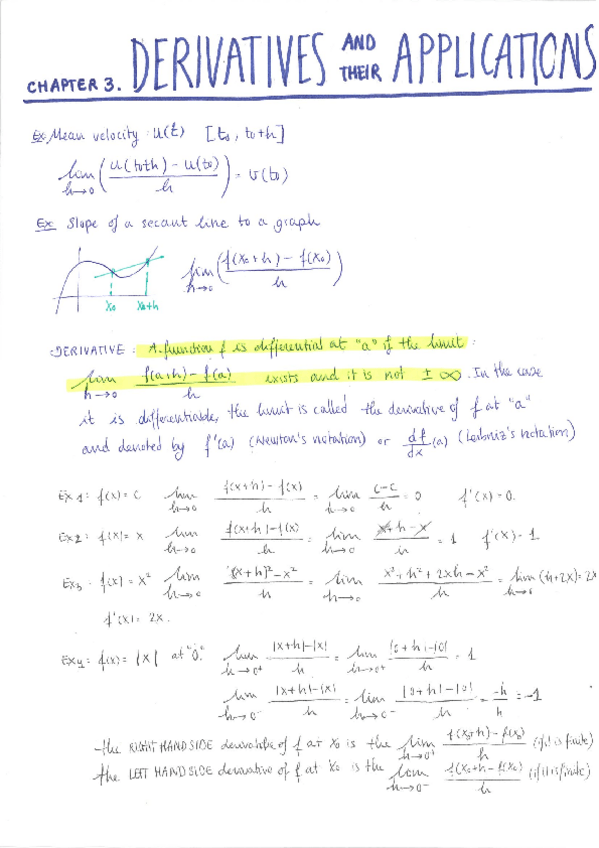 CHAPTER 3. DERIVATIVES AND THEIR APPLICATIONS
Ex Mean velocity : u(t) [t₀, t₀+h]
lim h→0 ( (u(t₀+h) - u(t₀)) / h ) = v(t₀)
Ex: Slope of a secant line to a graph
lim h→0 ( (f(x₀+h) - f(x₀)) / h )
x₀ x₀+h
DERIVATIVE : A function f is differential at "a" if the limit :
lim h→0 (f(a+h) - f(a)) / h exists and it is not ± ∞. In the case
it is differentiable, the limit is called the derivative of f at "a"
and denoted by f'(a) (Newton's notation) or df/dx (a) (Leibniz's notation)
Ex 1: f(x) = c lim h→0 (f(x+h) - f(x)) / h = lim h→0 (c-c)/h = 0 f'(x) = 0.
Ex 2: f(x) = x lim h→0 (f(x+h) - f(x)) / h = lim h→0 (x+h-x)/h = 1 f'(x) = 1.
Ex 3: f(x) = x² lim h→0 ((x+h)² - x²) / h = lim h→0 (x² + h² + 2xh - x²) / h = lim h→0 (h+2x) = 2x
f'(x) = 2x.
Ex 4: f(x) = |x| at "0". lim h→0⁺ (|x+h| - |x|) / h = lim h→0⁺ (|0+h| - |0|) / h = 1
lim h→0⁻ (|x+h| - |x|) / h = lim h→0⁻ (|0+h| - |0|) / h = -h/h = -1
the RIGHT HAND SIDE derivative of f at x₀ is the lim h→0⁺ (f(x₀+h) - f(x₀)) / h (if it is finite)
the LEFT HAND SIDE derivative of f at x₀ is the lim h→0⁻ (f(x₀+h - f(x₀)) / h (if it is finite)